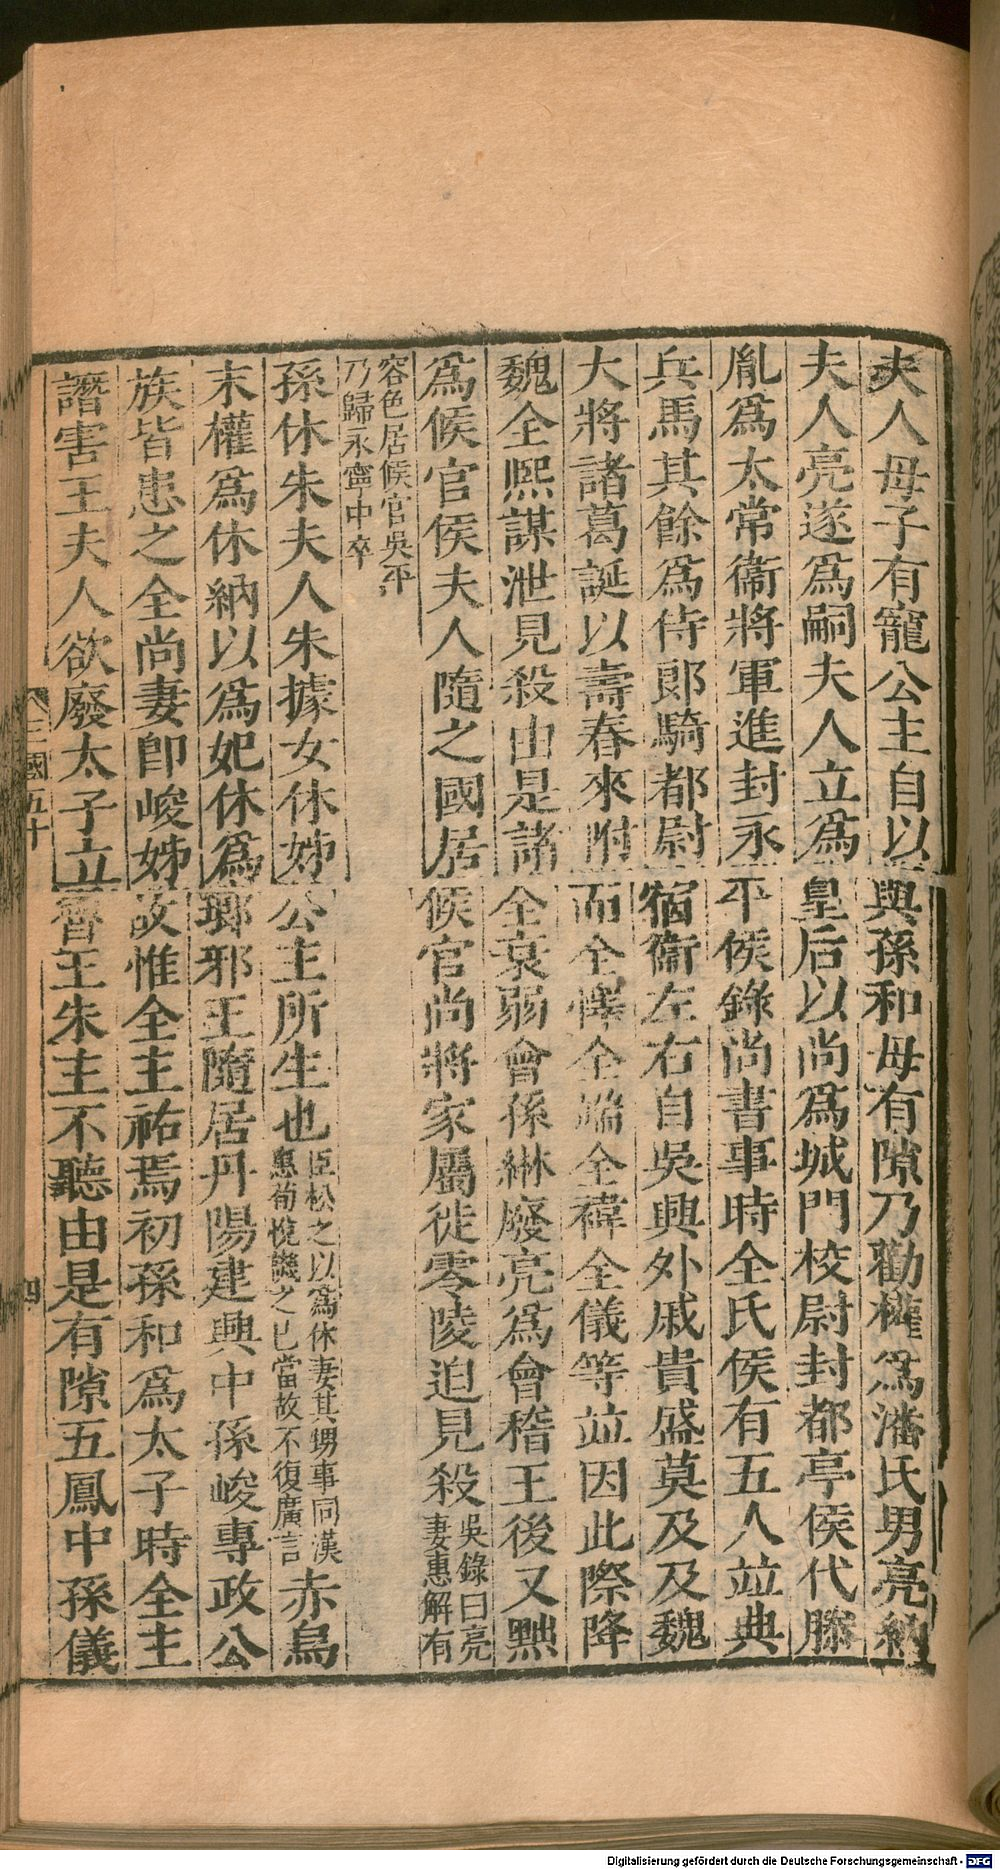 夫人母子有寵公主自以與孫和母有隙乃勸權爲潘氏男亮納
夫人亮遂爲嗣夫人立爲皇后以尚爲城門校尉封都亭侯代滕
胤爲太常衞將軍進封永平侯錄尚書事時全氏侯有五人竝典
兵馬其餘爲侍郞騎都尉宿衞左右自吳興外戚貴盛莫及及魏
大將諸葛誕以壽春來附而全懌全端全禕全儀等竝因此際降
魏全熙謀泄見殺由是諸全衰弱會孫綝廢亮爲會稽王後又黜
爲候官侯夫人隨之國居候官尚將家屬徙零陵追見殺吳錄曰亮妻惠解有
容色居候官吳平乃歸永寧中卒
孫休朱夫人朱據女休姊公主所生也臣松之以爲休妻其甥事同漢惠荀悅譏之已當故不復廣言赤烏
末權爲休納以爲妃休爲琅邪王隨居丹陽建興中孫峻專政公
族皆患之全尚妻卽峻姊故惟全主祐焉初孫和爲太子時全主
譖害王夫人欲廢太子立魯王朱主不聽由是有隙五鳳中孫儀
三國五十
四
Digitalisierung gefördert durch die Deutsche Forschungsgemeinschaft - DFG